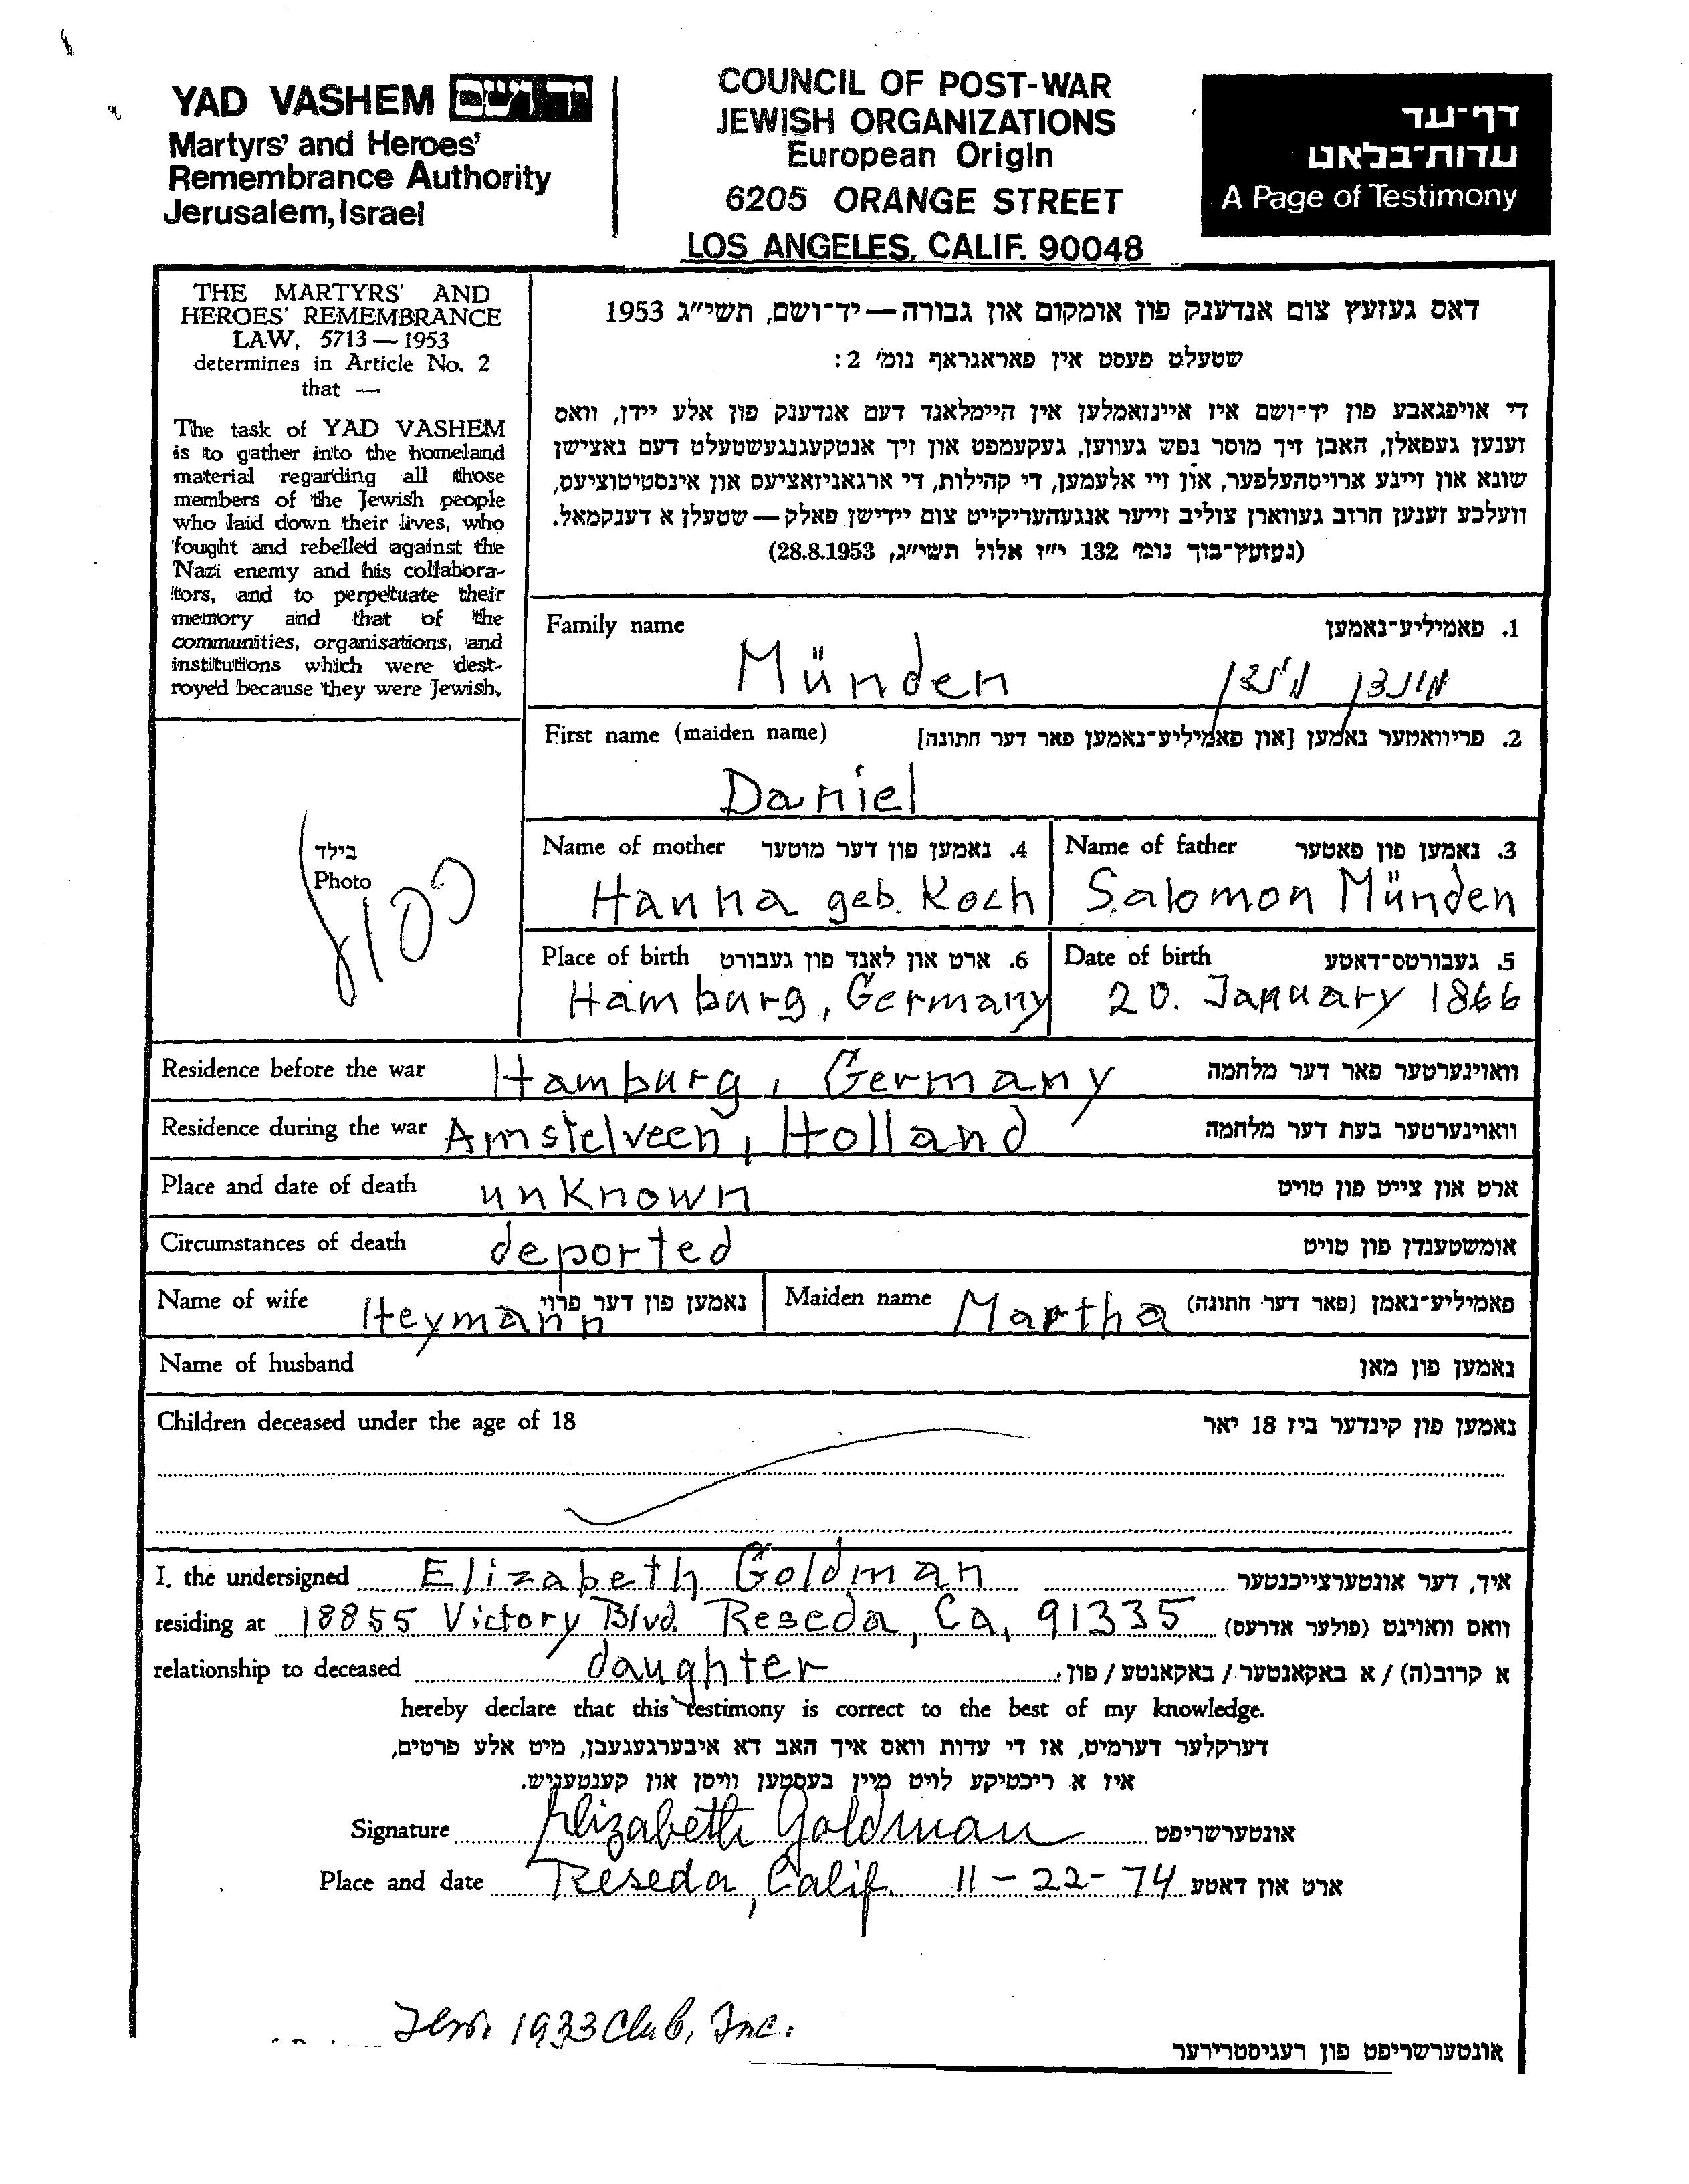 YAD VASHEM יד ושם
Martyrs' and Heroes'
Remembrance Authority
Jerusalem, Israel
COUNCIL OF POST-WAR
JEWISH ORGANIZATIONS
European Origin
6205 ORANGE STREET
LOS ANGELES, CALIF. 90048
דף-עד
עדות-בלאט
A Page of Testimony
THE MARTYRS' AND
HEROES' REMEMBRANCE
LAW, 5713 — 1953
determines in Article No. 2
that —
The task of YAD VASHEM
is to gather into the homeland
material regarding all those
members of the Jewish people
who laid down their lives, who
fought and rebelled against the
Nazi enemy and his collabora-
tors, and to perpetuate their
memory and that of the
communities, organisations, and
institutions which were dest-
royed because they were Jewish.
דאס געזעץ צום אנדענק פון אומקום און גבורה — יד-ושם, תשי"ג 1953
שטעלט פעסט אין פאראגראף נומ' 2:
די אויפגאבע פון יד-ושם איז איינזאמלען אין היימלאנד דעם אנדענק פון אלע יידן, וואס
זענען געפאלן, האבן זיך מוסר נפש געווען, געקעמפט און זיך אנטקעגנגעשטעלט דעם נאצישן
שונא און זיינע ארויסהעלפער, און זיי אלעמען, די קהילות, די ארגאניזאציעס און אינסטיטוציעס,
וועלכע זענען חרוב געווארן צוליב זייער אנגעהעריקייט צום יידישן פאלק — שטעלן א דענקמאל.
(געזעץ-בוך נומ' 132 י"ז אלול תשי"ג, 28.8.1953)
Family name 1. פאמיליע-נאמען
Münden מונדן
First name (maiden name) 2. פריוואטער נאמען [און פאמיליע-נאמען פאר דער חתונה]
Daniel
בילד
Photo
Name of mother 4. נאמען פון דער מוטער Name of father 3. נאמען פון פאטער
Hanna geb. Koch Salomon Münden
Place of birth 6. ארט און לאנד פון געבורט Date of birth 5. געבורטס-דאטע
Hamburg, Germany 20. January 1866
Residence before the war Hamburg, Germany וואוינערטער פאר דער מלחמה
Residence during the war Amstelveen, Holland וואוינערטער בעת דער מלחמה
Place and date of death unknown ארט און צייט פון טויט
Circumstances of death deported אומשטענדן פון טויט
Name of wife Heymann נאמען פון דער פרוי Maiden name Martha פאמיליע-נאמן (פאר דער חתונה)
Name of husband נאמען פון מאן
Children deceased under the age of 18 נאמען פון קינדער ביז 18 יאר
I, the undersigned Elizabeth Goldman איך, דער אונטערצייכנטער
residing at 18855 Victory Blvd. Reseda, Ca, 91335 וואס וואוינט (פולער אדרעס)
relationship to deceased daughter א קרוב(ה) / א באקאנטער / באקאנטע / פון:
hereby declare that this testimony is correct to the best of my knowledge.
דערקלער דערמיט, אז די עדות וואס איך האב דא איבערגעגעבן, מיט אלע פרטים,
איז א ריכטיקע לויט מיין בעסטען וויסן און קענטעניש.
Signature Elizabeth Goldman אונטערשריפט
Place and date Reseda, Calif. 11-22-74 ארט און דאטע
1933 Club, Inc.
אונטערשריפט פון רעגיסטרירער